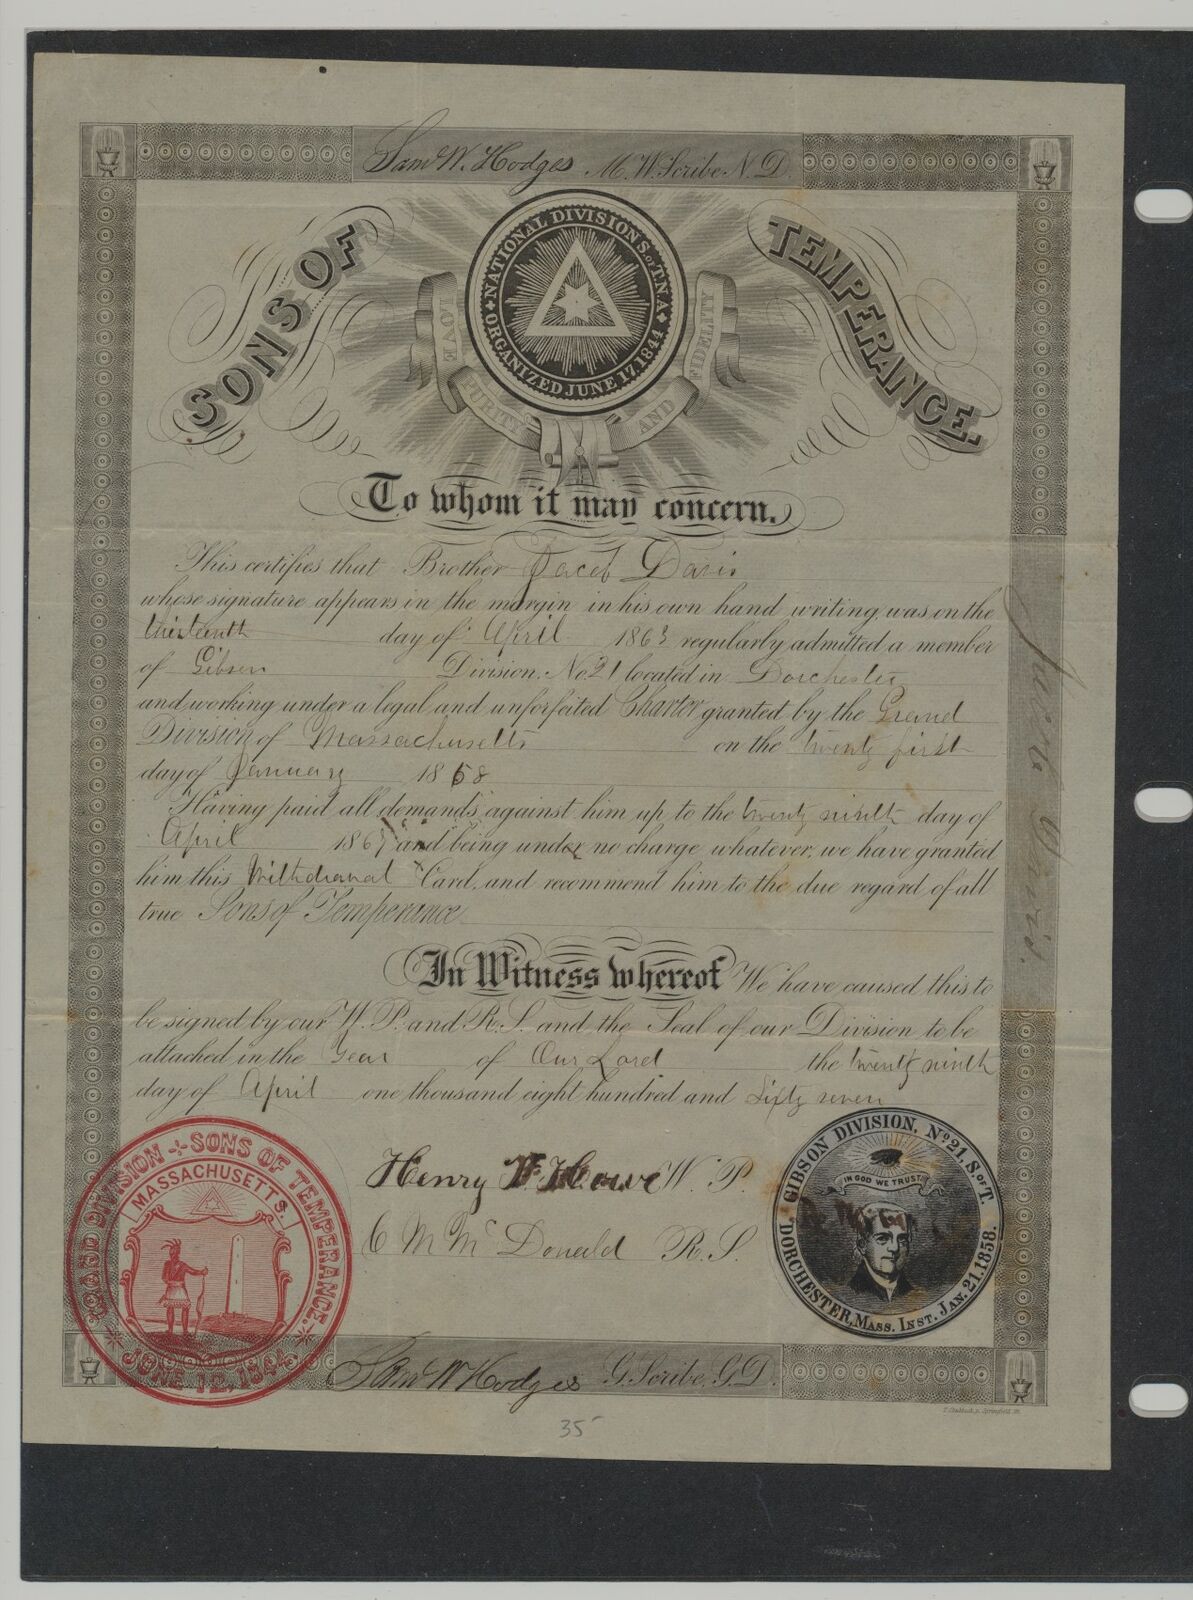 Sam W. Hodges M. W. Scribe N. D.
SONS OF TEMPERANCE.
NATIONAL DIVISION S. of T. N. A.
ORGANIZED JUNE 17, 1844
LOVE PURITY AND FIDELITY
To whom it may concern.
This certifies that Brother Jacob Davis
whose signature appears in the margin in his own hand writing, was on the
thirteenth day of April 1863 regularly admitted a member
of Gibson Division, No. 21 located in Dorchester
and working under a legal and unforfeited Charter granted by the Grand
Division of Massachusetts on the twenty first
day of January 1858
Having paid all demands against him up to the twenty ninth day of
April 1867 and being under no charge whatever, we have granted
him this Withdrawal Card, and recommend him to the due regard of all
true Sons of Temperance
In Witness whereof We have caused this to
be signed by our W. P. and R. S. and the Seal of our Division to be
attached in the Year of Our Lord the twenty ninth
day of April one thousand eight hundred and Sixty seven
Henry F. Howe W. P.
C M McDonald R. S.
Jacob Davis.
GRAND DIVISION SONS OF TEMPERANCE.
MASSACHUSETTS.
JUNE 12, 1844.
GIBSON DIVISION, No. 21, S. of T.
IN GOD WE TRUST
DORCHESTER, MASS. INST. JAN. 21. 1858.
Sam W Hodges G. Scribe, G. D.
35